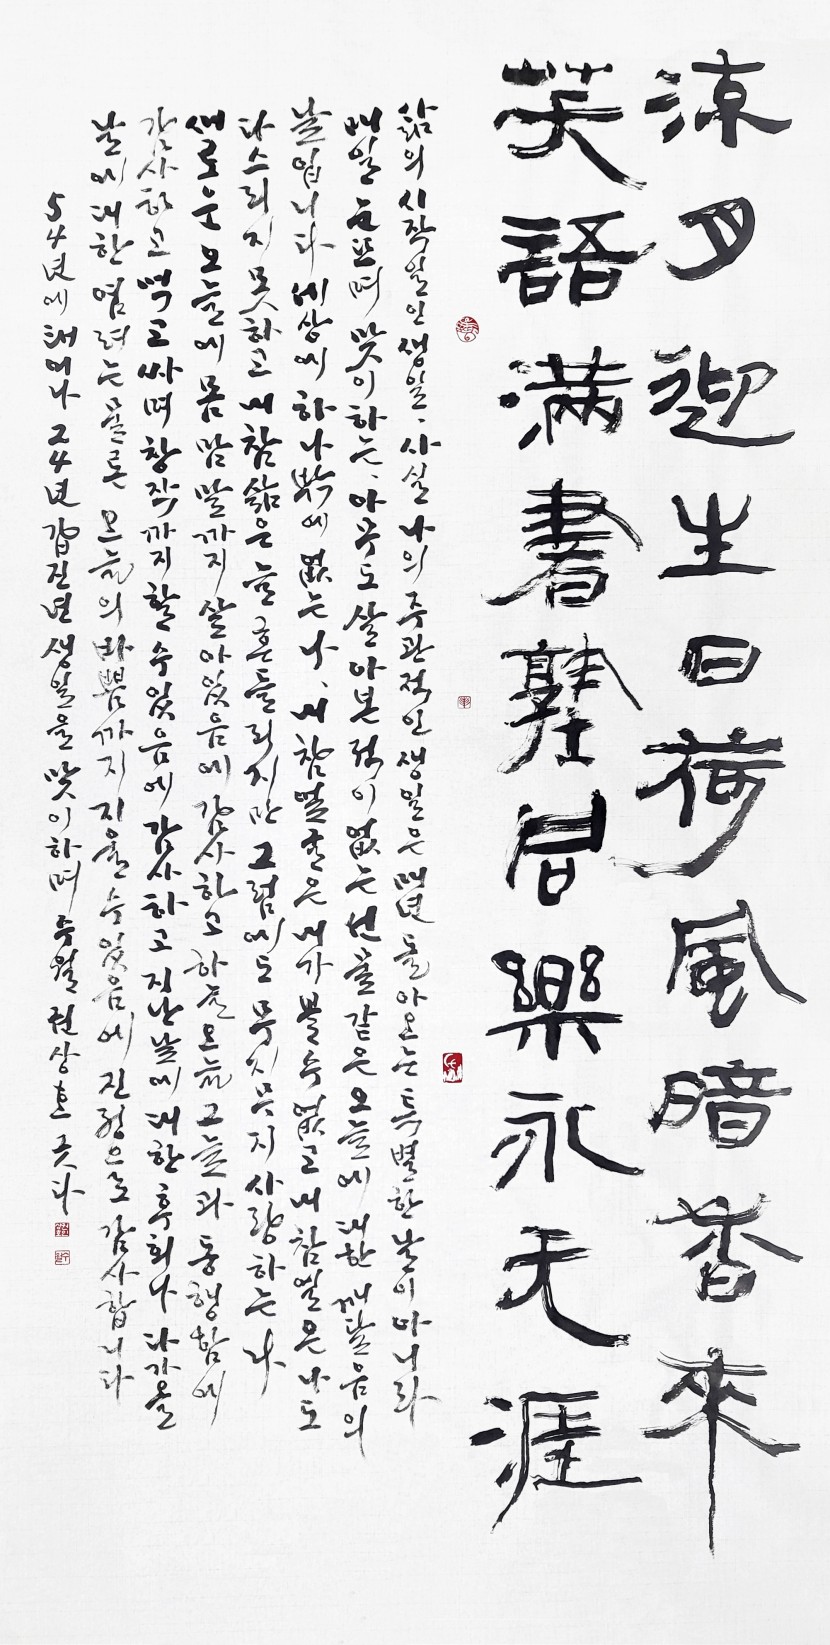 涼月迎生日荷風暗香來
笑語滿書塾同樂永天涯
삶의 시작일인 생일, 사실 나의 주관적인 생일은 매년 돌아오는 특별한 날이 아니라
매일 눈뜨며 맞이하는, 아무도 살아본 적이 없는 선물같은 오늘에 대한 깨달음의
날입니다 세상에 하나밖에 없는 나, 내 참얼굴은 내가 볼 수 없고 내 참맘은 나도
다스리지 못하고 내 참삶은 늘 흔들리지만 그럼에도 무지무지 사랑하는 나
새로운 오늘에 몸 맘 말까지 살아있음에 감사하고 하늘 오늘 그늘과 동행함에
감사하고 먹고 싸며 창작까지 할 수 있음에 감사하고 지난날에 대한 후회나 다가올
날에 대한 염려는 물론 오늘의 바쁨까지 지울 수 있음에 진정으로 감사합니다
54년에 태어나 24년 갑진년 생일을 맞이하며 수월 권상호 긋다